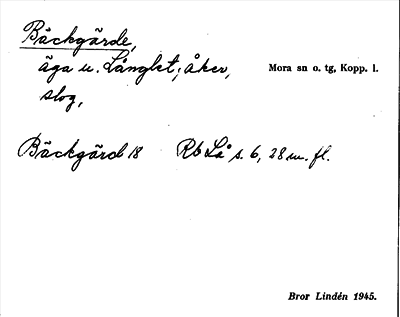 Bäckgärde,
äga u. Långlet; åker, Mora sn o. tg, Kopp. l.
slog,
Bäckgärd 18 Rb Lå s. 6, 28 m. fl.
Bror Lindén 1945.